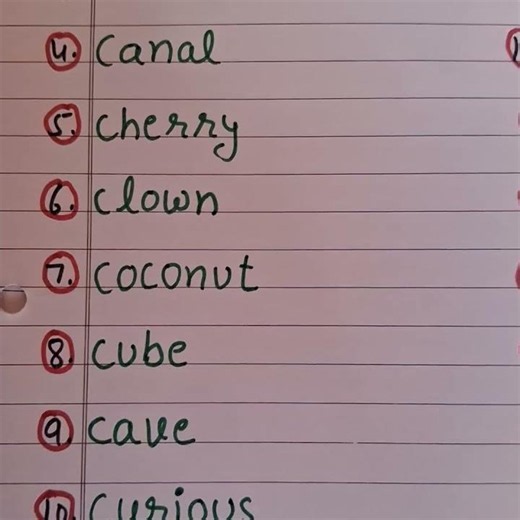 4. Canal
5. Cherry
6. Clown
7. Coconut
8. Cube
9. Cave
10. Curious